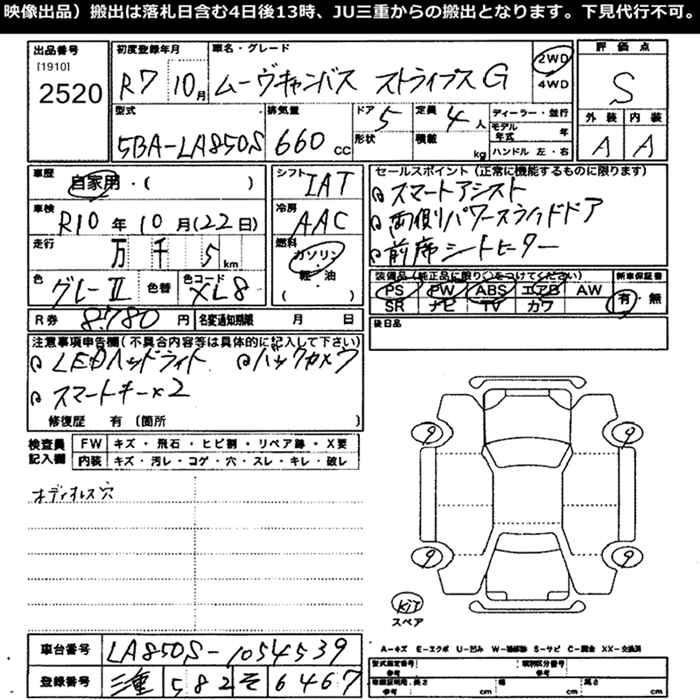 映像出品）搬出は落札日含む4日後13時、JU三重からの搬出となります。下見代行不可。
出品番号 [1910] 2520
初度登録年月 R7 10月
車名・グレード ムーヴキャンバス ストライプスG
2WD 4WD
評価点 S
外装 A 内装 A
型式 5BA-LA850S
排気量 660 cc
ドア 形状 5
定員 4人 積載 kg
ディーラー・並行
モデル年式 年
ハンドル 左・右
車歴 自家用・( )
シフト IAT
車検 R10年10月(22日)
冷房 AAC
走行 万 千 5 km
燃料 ガソリン 軽・油
色 グレーII 色替 色コード XL8
R券 8780円 名変通知期限 月 日
セールスポイント（正常に機能するものに限ります）
スマートアシスト
両側パワースライドドア
前席シートヒーター
装備品（純正品に限り○をつけてください） 新車保証書
PS PW ABS エアB AW 有・無
SR ナビ TV カワ
後日品
注意事項申告欄（不具合内容等は具体的に記入して下さい）
LEDヘッドライト バックカメラ
スマートキー×2
修復歴 有（箇所 ）
検査員記入欄
FW キズ・飛石・ヒビ割・リペア跡・X要
内装 キズ・汚レ・コゲ・穴・スレ・キレ・破レ
オーディオレス穴
9 9
9 9
Kit
スペア
A-キズ E-エクボ U-凹み W-補修跡 S-サビ C-腐食 XX-交換済
車台番号 LA850S-1054539
型式指定番号 参考 類別区分番号 参考
登録番号 三重 582 そ 6467
車検証利用、長さ 参考 cm 幅 cm 高さ cm